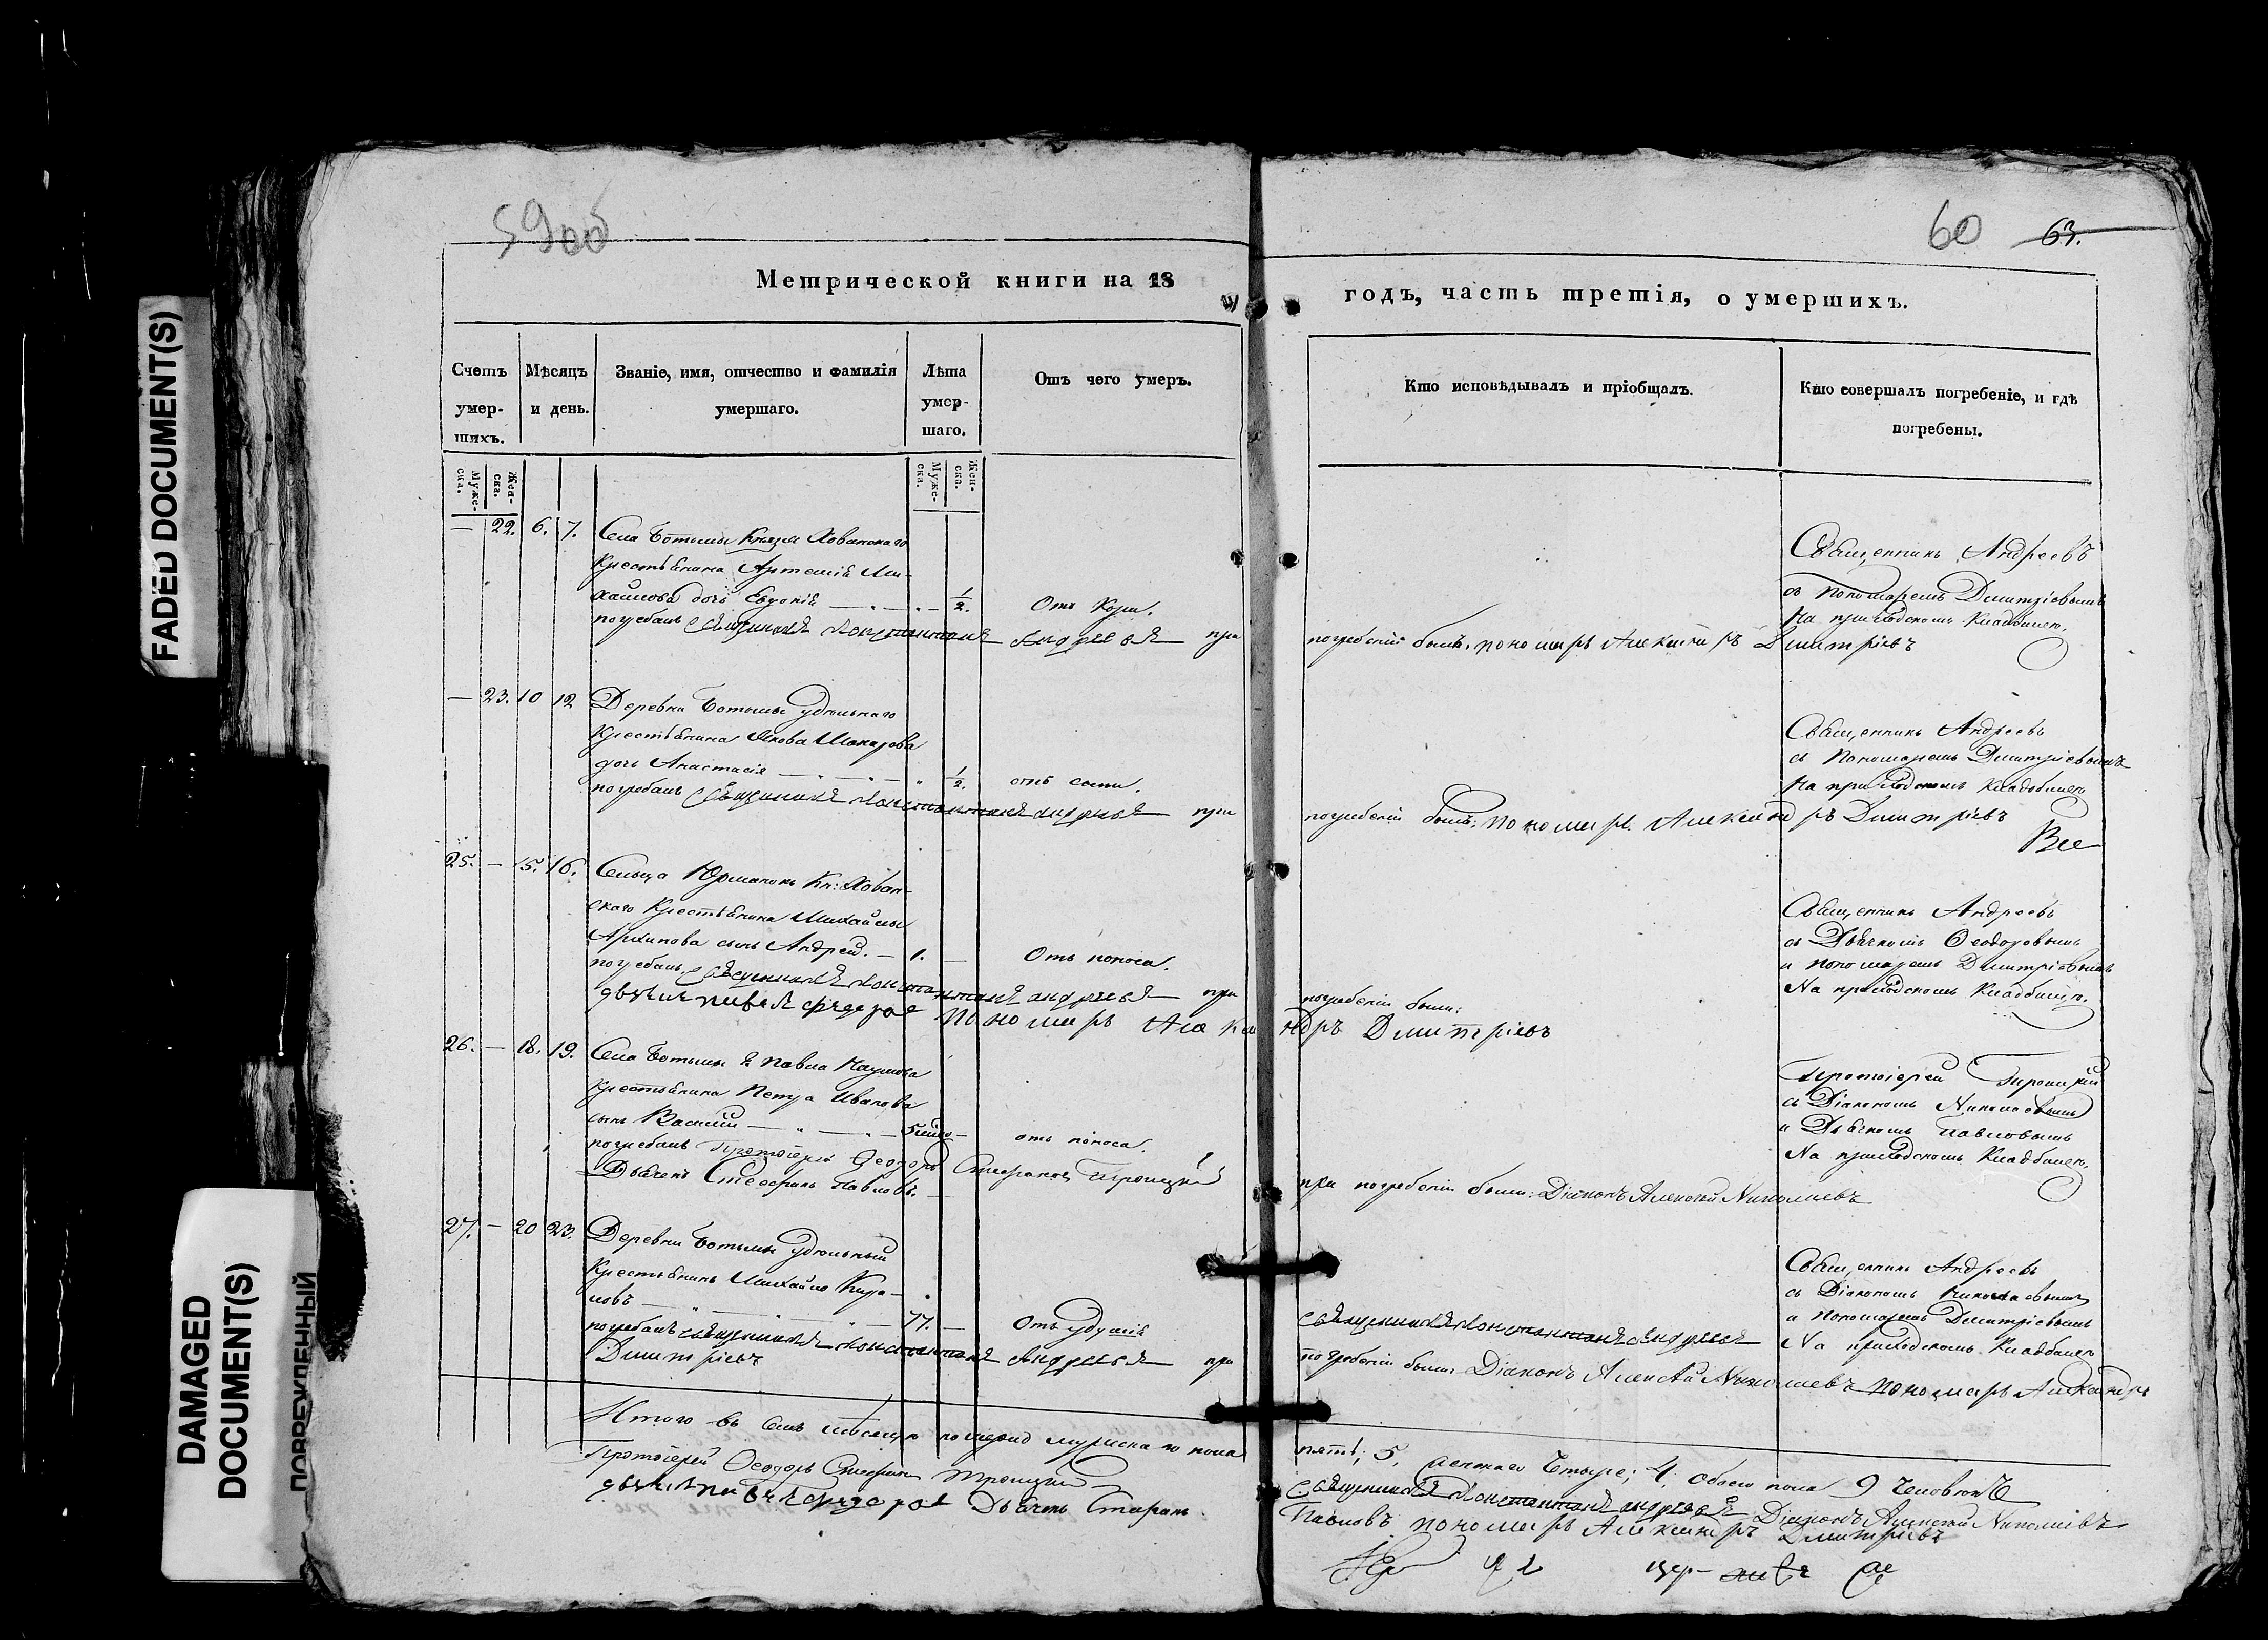 59об
60 63.
Метрической книги на 18
годъ, часть третія, о умершихъ.
Счетъ умер- шихъ.
Мѣсяцъ и день.
Званіе, имя, отчество и фамилія умершаго.
Лѣта умер- шаго.
Отъ чего умеръ.
Кто исповѣдывалъ и пріобщалъ.
Кто совершалъ погребеніе, и гдѣ погребены.
Муже- ска.
Жен- ска.
Муже- ска.
Жен- ска.
— 22. 6. 7. Села Ботьмы Князя Хованскаго
Крестьянина Артемія Ми-
хайлова дочь Евдокія — 1/2. Отъ Кори.
Священникъ Андреевъ
съ Пономаремъ Димитріевымъ
На приходскомъ Кладбищѣ.
погребалъ священникъ Константинъ Андреевъ при
погребеніи былъ: пономарь Александръ Димитріевъ
— 23. 10 12 Деревни Ботьмы удѣльнаго
Крестьянина Якова Макарова
дочь Анастасія — 1/2. отъ
Священникъ Андреевъ
съ Пономаремъ Димитріевымъ
На приходскомъ Кладбищѣ
погребалъ священникъ Константинъ Андреевъ при
погребеніи былъ: пономарь Александръ Димитріевъ
25. — 15. 16. Сельца Юрманокъ Кн: Хован-
скаго Крестьянина Михайлы
Архипова сынъ Андрей. — 1. — Отъ поноса.
Священникъ Андреевъ
съ Дьячкомъ Ѳеодоровымъ
и пономаремъ Димитріевымъ
На приходскомъ Кладбищѣ.
погребалъ священникъ Константинъ Андреевъ при
погребеніи были:
пономарь Александръ Димитріевъ
26. — 18. 19. Села Ботьмы Г. Павла Наумова
Крестьянина Петра Иванова
сынъ Василій — отъ поноса.
Протоіерей Троицкій
съ Діакономъ Николаевымъ
и Дьячкомъ Павловымъ
На приходскомъ Кладбищѣ.
погребалъ Протоіерей Ѳеодоръ Стефановъ Троицкій
при погребеніи были: Діаконъ Алексей Николаевъ
Дьячекъ Стефанъ Павловъ.
27. — 20 23. Деревни Ботьмы удѣльный
Крестьянинъ Михайло
ловъ — 77. — Отъ удушія
Священникъ Андреевъ
съ Діакономъ Николаевымъ
и Пономаремъ Димитріевымъ
На приходскомъ Кладбищѣ
священникъ Константинъ Андреевъ
погребалъ священникъ Константинъ Андреевъ при
погребеніи были: Діаконъ Алексей Николаевъ пономарь Александръ
Димитріевъ
Итого въ семъ мѣсяцѣ померло мужеска го пола
пять; 5, женскаго Четыре; 4. обоего пола 9 Человѣкъ
Протоіерей Ѳеодоръ Стефановъ Троицкій
священникъ Константинъ Андреевъ Діаконъ Алексей Николаевъ
Дьячекъ Стефанъ
Павловъ пономарь Александръ Димитріевъ
FADED DOCUMENT(S)
DAMAGED DOCUMENT(S)
ПОВРЕЖДЕННЫЙ